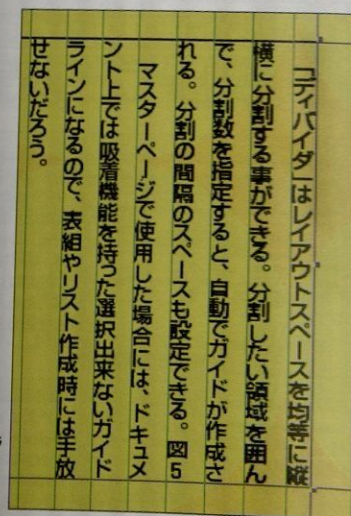 コディバイダーはレイアウトスペースを均等に縦
横に分割する事ができる。分割したい領域を囲ん
で、分割数を指定すると、自動でガイドが作成さ
れる。分割の間隔のスペースも設定できる。図5
マスターページで使用した場合には、ドキュメ
ント上では吸着機能を持った選択出来ないガイド
ラインになるので、表組やリスト作成時には手放
せないだろう。